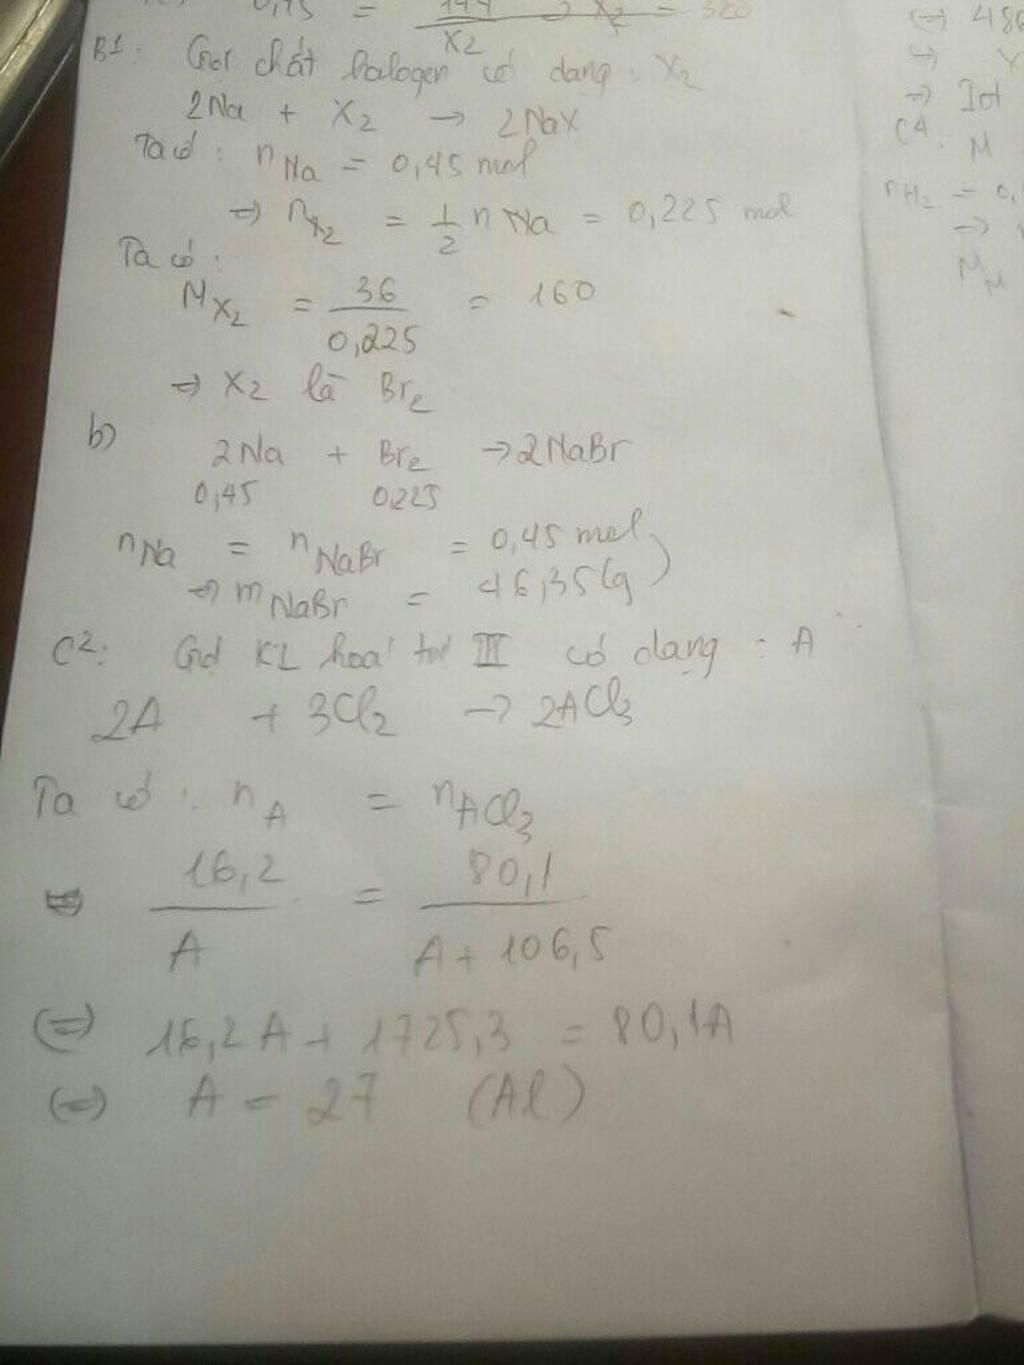 0,45 = 144/X2 => X2 = 320
B1: Gọi chất halogen có dạng : X2
2Na + X2 → 2NaX
Ta có : nNa = 0,45 mol
=> nX2 = 1/2 nNa = 0,225 mol
Ta có :
MX2 = 36/0,225 = 160
=> X2 là Br2
b) 2Na + Br2 → 2NaBr
0,45 0,225
nNa = nNaBr = 0,45 mol
=> mNaBr = 46,35(g)
C2: Gọi KL hoá trị III có dạng : A
2A + 3Cl2 → 2ACl3
Ta có : nA = nACl3
16,2/A = 80,1/A + 106,5
(=) 16,2A + 1725,3 = 80,1A
(=) A = 27 (Al)
(=) 486
=>
=> Iot
C4: M
nH2 = 0,
→
MM